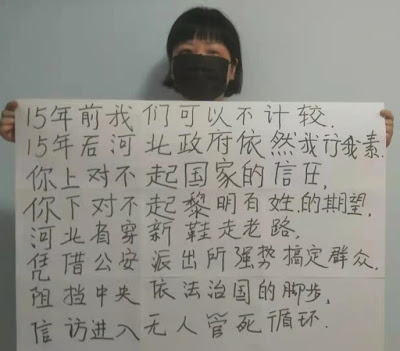 15年前我们可以不计较.
15年后河北政府依然我行我素.
你上对不起国家的信任,
你下对不起黎明百姓.的期望,
河北省穿新鞋走老路.
凭借公安派出所强势搞定群众.
阻挡中央依法治国的脚步,
信访进入无人管死循环.